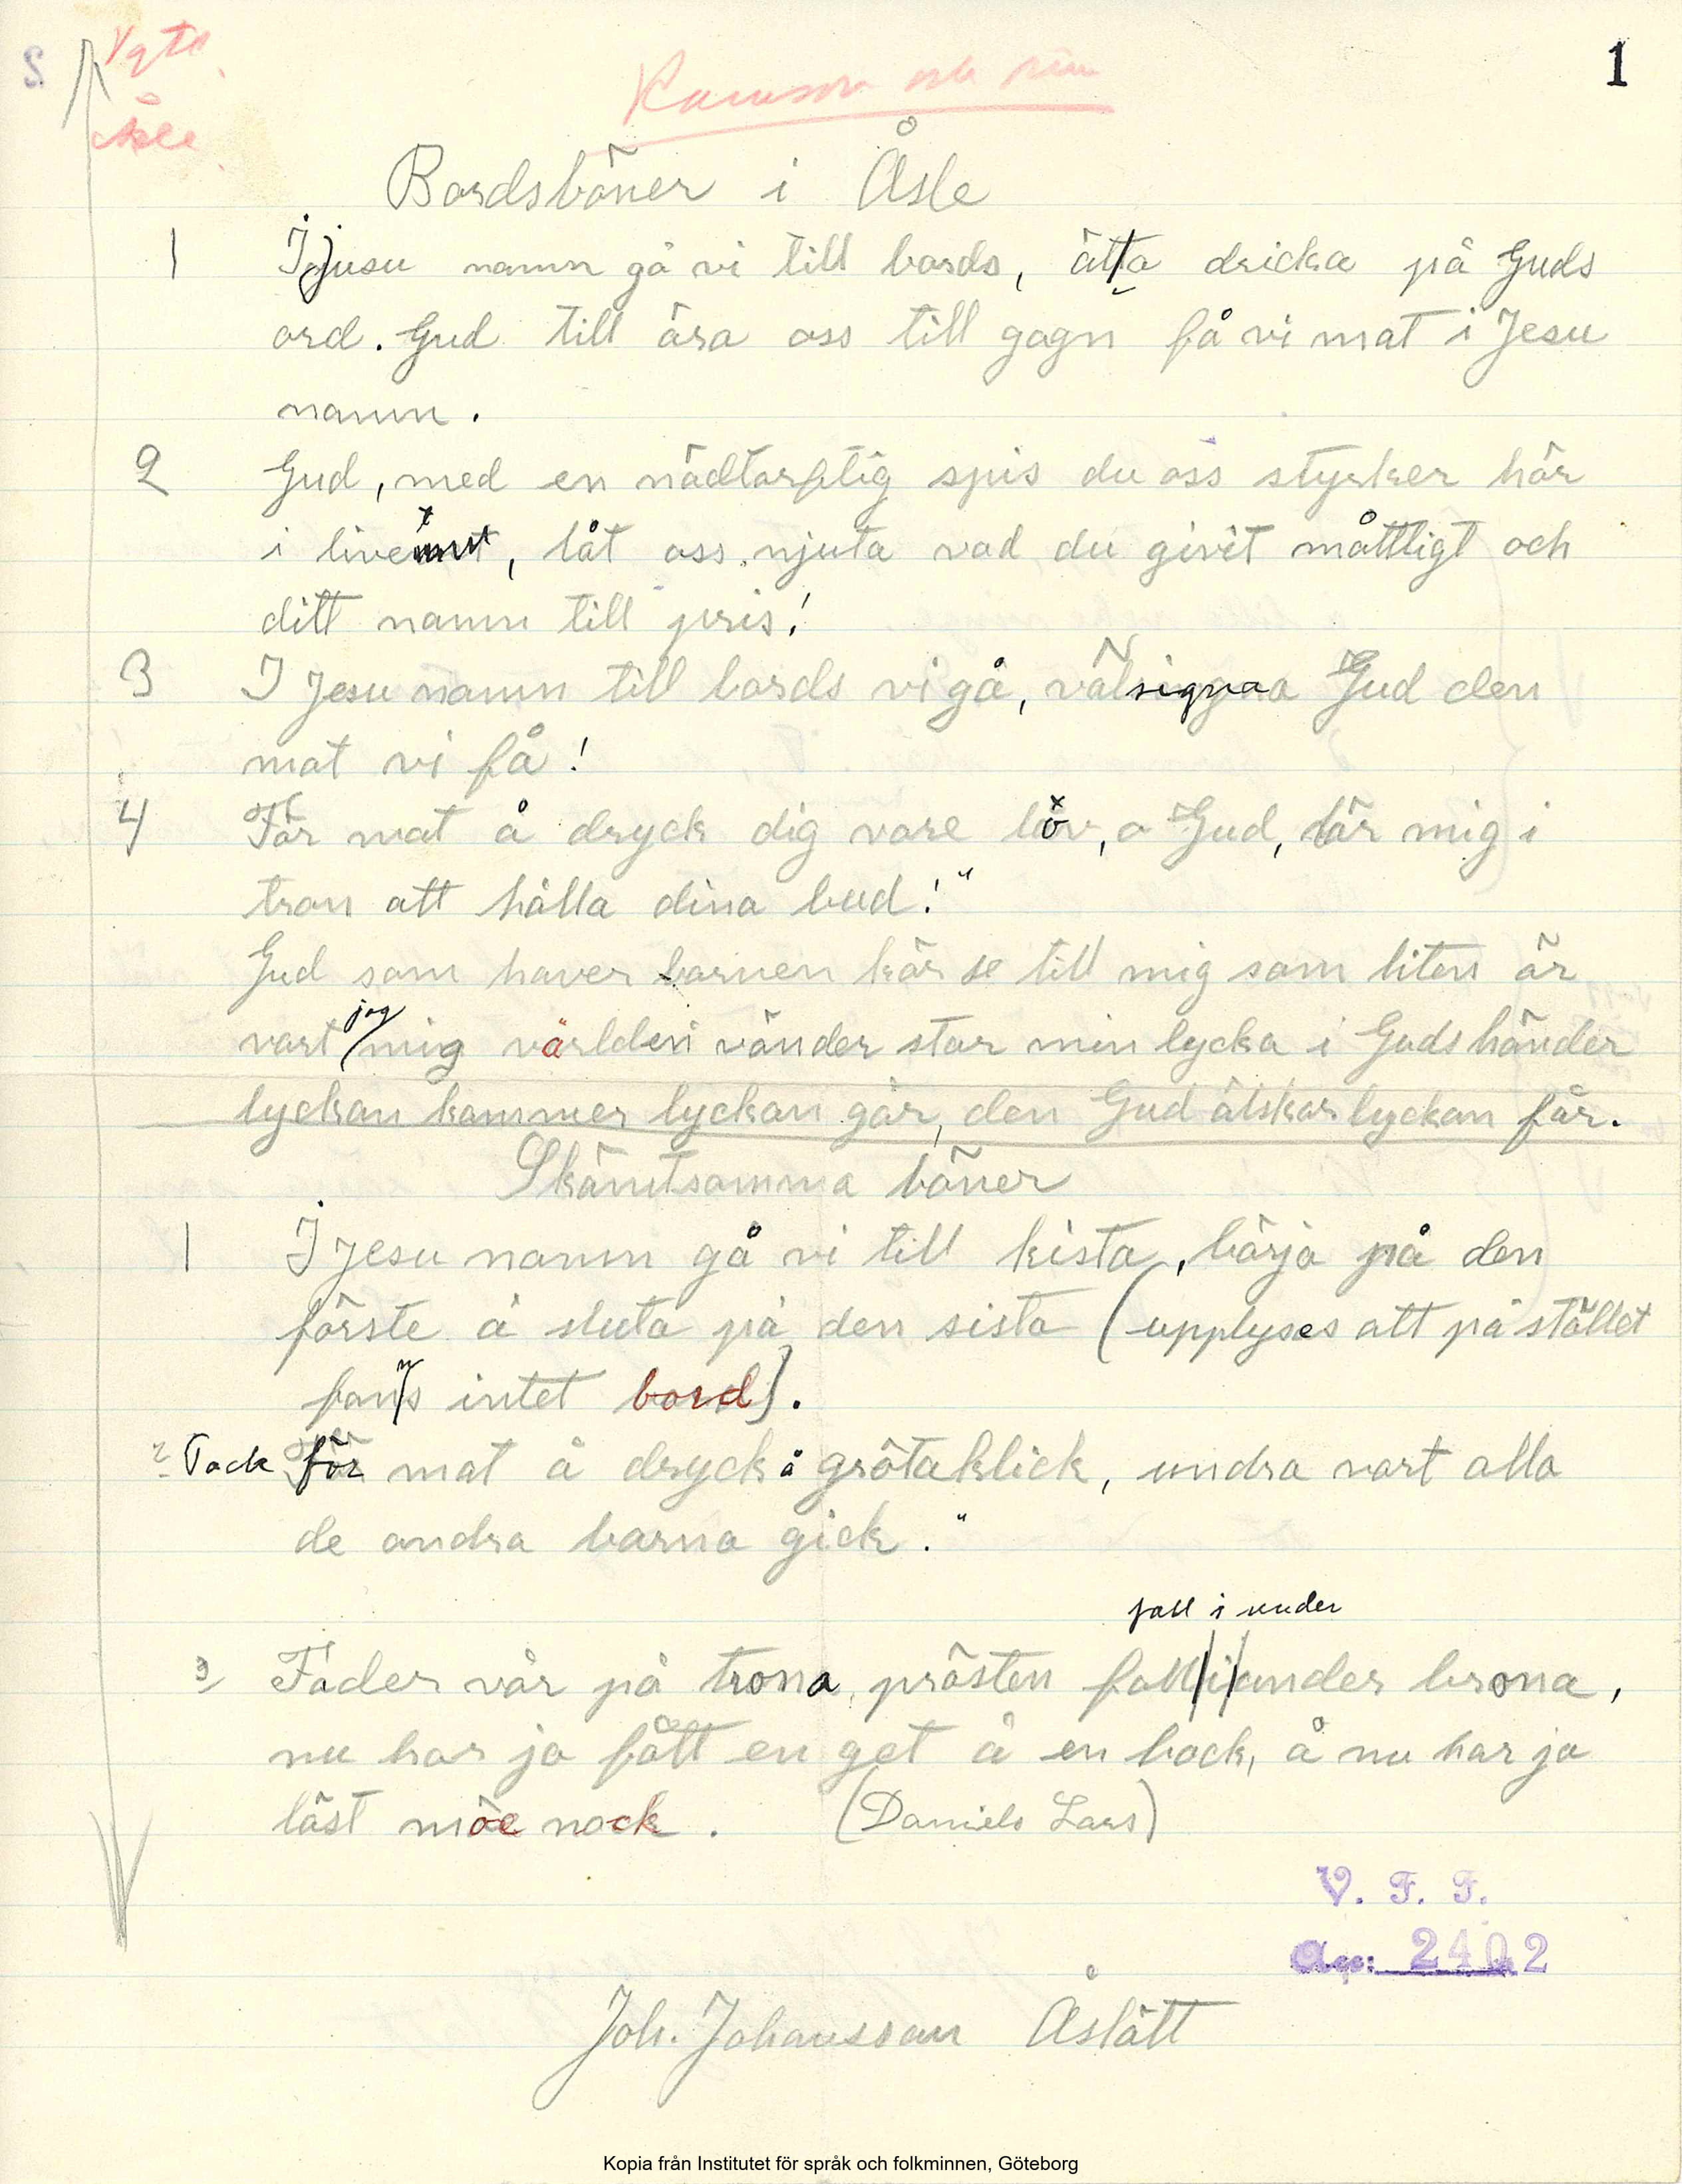 S. Vgtl
Åsle
Ramsor och rim
1
Bordsböner i Åsle
1 I Jusu namn gå vi till bords, ätta dricka på Guds
ord. Gud till ära oss till gagn få vi mat i Jesu
namn.
2 Gud, med en nödtorftig spis du oss styrker här
i livet, låt oss njuta vad du givit måttligt och
ditt namn till pris!
3 I Jesu namn till bords vi gå, välsigna Gud den
mat vi få!
4 För mat å dryck dig vare löv, o Gud, lär mig i
tron att hålla dina bud!"
Gud som haver barnen kär se till mig som liten är
vart jag mig världen vänder står min lycka i Guds händer
lyckan kommer lyckan går, den Gud älskar lyckan får.
Skämtsamma böner
1 I Jesu namn gå vi till kista, börja på den
förste å sluta på den sista (upplyses att på stället
fanns intet bord).
2 Tack för mat å dryck å grötaklick, undra vart alla
de andra barna gick."
fall i under
3 Fader vår på trona, prästen fall i under brona,
nu har ja fått en get å en bock, å nu har ja
läst möe nock. (Daniels Lars)
V. F. F.
Acc: 2402
Joh. Johansson Åslätt
Kopia från Institutet för språk och folkminnen, Göteborg